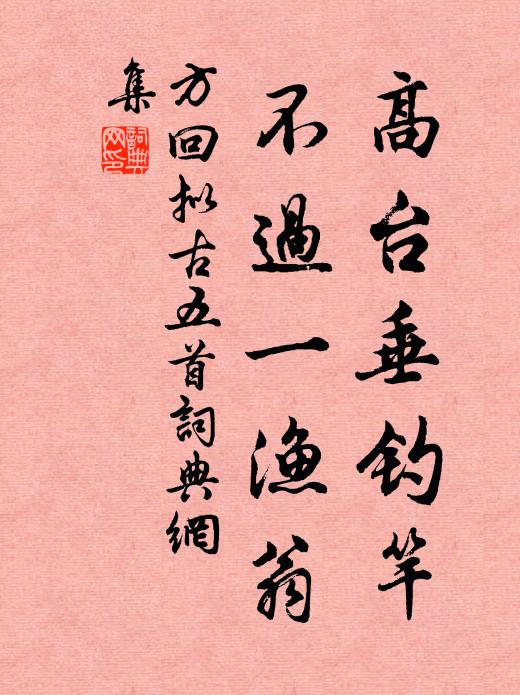 高台垂钓竿
不過一漁翁
方回拟古五首詞典網
集
詞典網印